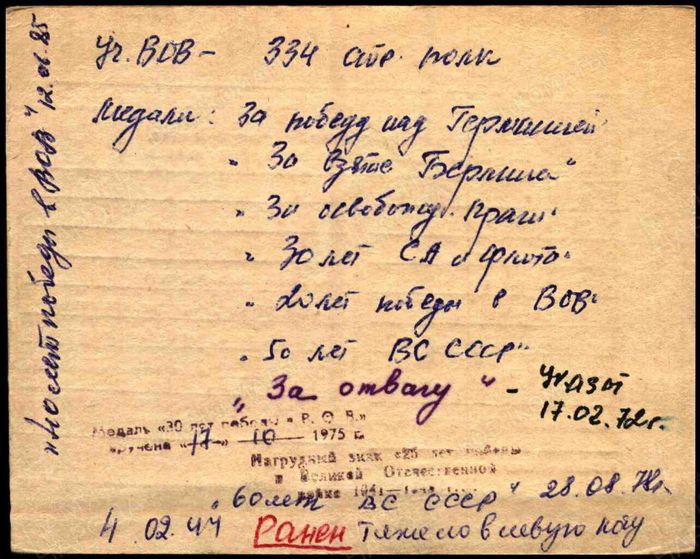 Уч. ВОВ - 334 стр. полк
Медали: За победу над Германией
" За взятие Берлина"
" За освобожд. Праги"
" 30 лет СА и флота"
" 20 лет победы в ВОВ"
" 50 лет ВС СССР"
" За отвагу" - Указ от
17.02.72г.
Медаль «30 лет победы в В. О. В.»
вручена «17» 10 1975 г.
Нагрудный знак «25 лет победы
в Великой Отечественной
войне 1941
"60 лет ВС СССР" 28.08.78г.
4.02.44 Ранен тяжело в левую
"40 лет победы в ВОВ" 12.04.85